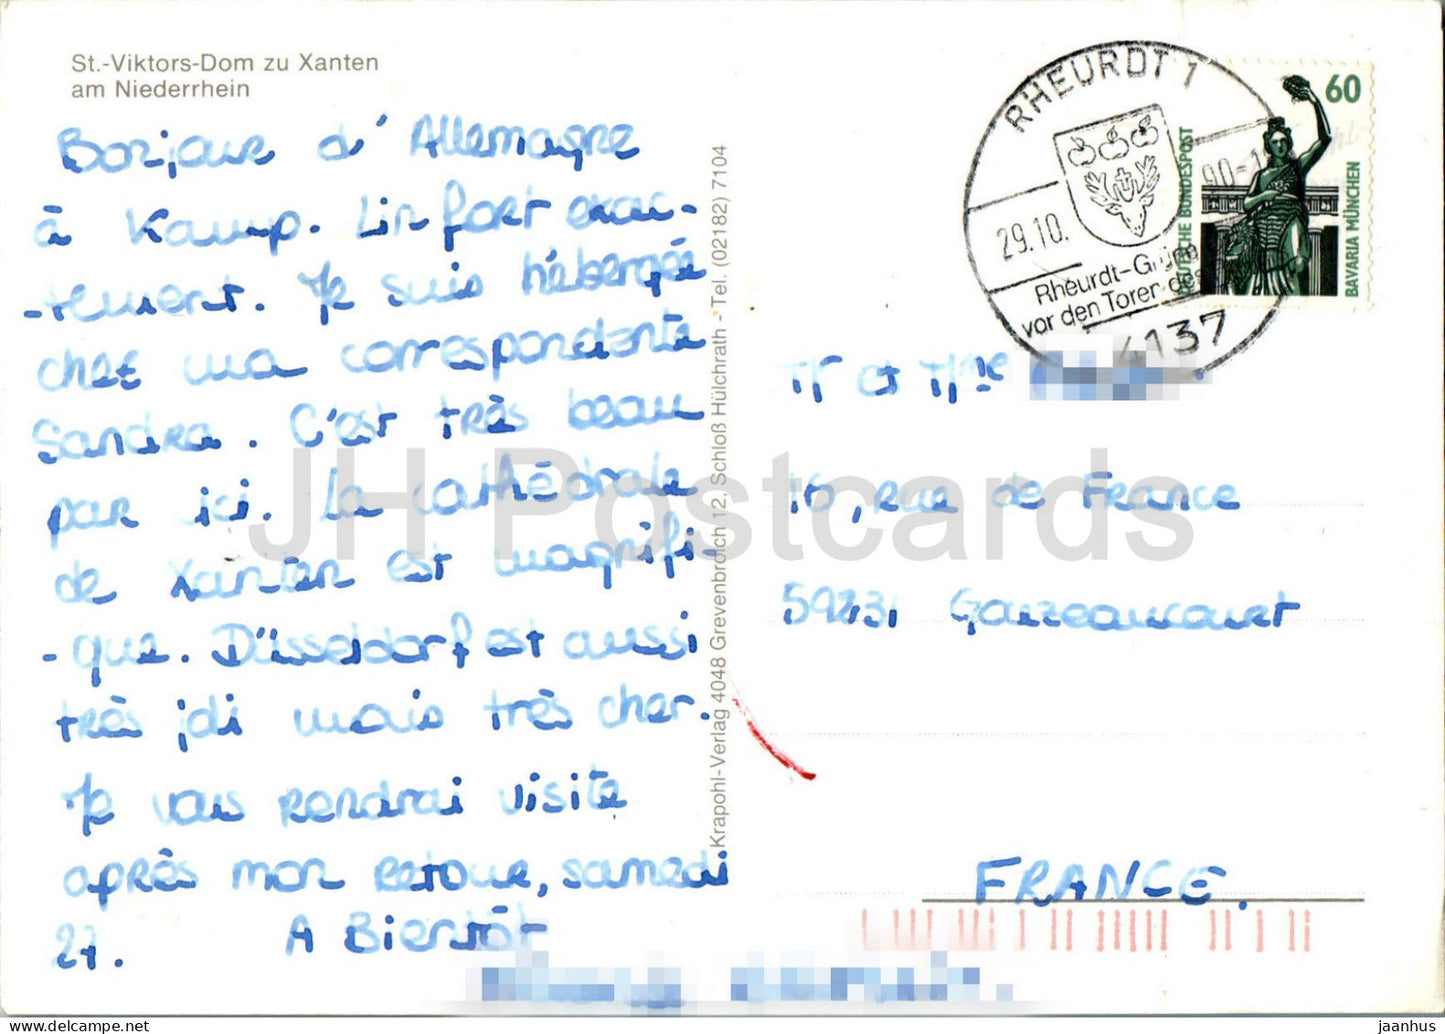 St.-Viktors-Dom zu Xanten
am Niederrhein
Bonjour d'Allemagne
à Kamp. Lin fort exac-
-tement. Je suis hébergée
chez ma correspondante
Sandra. C'est très beau
par ici. La cathédrale
de Xanten est magnifi-
-que. Düsseldorf est aussi
très joli mais très cher.
Je vous rendrai visite
après mon retour, samedi
27. A Bientôt
Krapohl-Verlag 4048 Grevenbroich 12, Schloß Hülchrath - Tel. (02182) 7104
RHEURDT 1
29.10.
90-1
Rheurdt-Grün
vor den Toren des
4137
60
DEUTSCHE BUNDESPOST
BAVARIA MÜNCHEN
Mr et Mme
16, rue de France
59231 Gouzeaucourt
FRANCE.
JH Postcards
jaanhus @ delcampe.net